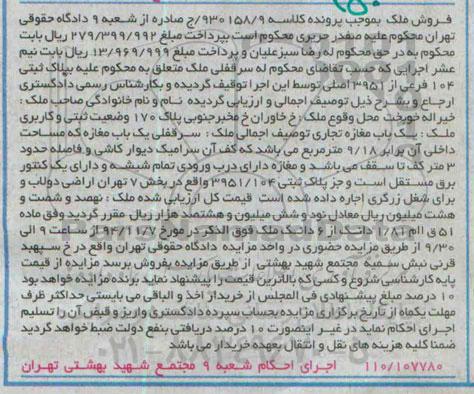 فروش ملک بموجب پرونده کلاسه ۹۳۰۱۵۸/۹/ج صادره از شعبه ۹ دادگاه حقوقی
تهران محکوم علیه صفدر حریری محکوم است بپرداخت مبلغ ۲۷۹/۳۹۹/۹۹۲ ریال بابت
محکوم به در حق محکوم له رضا سبزعلیان و پرداخت مبلغ ۱۳/۹۶۹/۹۹۹ ریال بابت نیم
عشر اجرایی که حسب تقاضای محکوم له سرقفلی ملک متعلق به محکوم علیه پلاک ثبتی
۱۰۴ فرعی از ۳۹۵۱ اصلی توسط این اجرا توقیف گردیده و بکارشناس رسمی دادگستری
ارجاع و بشرح ذیل توصیف اجمالی و ارزیابی گردیده نام و نام خانوادگی صاحب ملک :
خیراله خویخت محل وقوع ملک خ خاوران خ مخبرجنوبی پلاک ۱۷۰ وضعیت ثبتی و کاربری
ملک : یک باب مغازه تجاری توصیف اجمالی ملک : سرقفلی یک باب مغازه که مساحت
داخلی آن برابر ۹/۱۸ متر مربع می باشد که کف آن سرامیک دیوار کاشی و فاصله حدود
۳ متر کف تا سقف می باشد و مغازه دارای درب ورودی تمام شیشه و دارای یک کنتور
برق مستقل است و جز پلاک ثبتی ۳۹۵۱/۱۰۴ واقع در بخش ۷ تهران اراضی دولاب و
برای شغل زرگری اجاره داده شده است قیمت کل ارزیابی شده ملک : نهصد و شصت و
هشت میلیون ریال معادل نود و شش میلیون و هشتصد هزار ریال مقرر گردید وفق ماده
۵۱ ق اام ۱/۸۱ دانگ از ۶ دانگ ملک فوق الذکر در مورخ ۹۴/۱۱/۷ از ساعت ۹ الی
۹/۳۰ از طریق مزایده حضوری در واحد مزایده دادگاه حقوقی تهران واقع در خ سپهبد
قرنی نبش سمیه مجتمع شهید بهشتی از طریق مزایده بفروش برسد مزایده از قیمت
پایه کارشناسی شروع و کسی که بالاترین قیمت را پیشنهاد نماید برنده مزایده خواهد بود
۱۰ درصد مبلغ پیشنهادی فی المجلس از خریدار اخذ و الباقی می بایستی حداکثر ظرف
مهلت یکماه از تاریخ برگزاری مزایده بحساب سپرده دادگستری واریز و قبض آن را تسلیم
اجرای احکام نماید در غیر اینصورت ۱۰ درصد دریافتی بنفع دولت ضبط خواهد گردید
ضمنا کلیه هزینه های نقل و انتقال بعهده خریدار می باشد
۱۱۰/۱۰۷۷۸۰ اجرای احکام شعبه ۹ مجتمع شهید بهشتی تهران